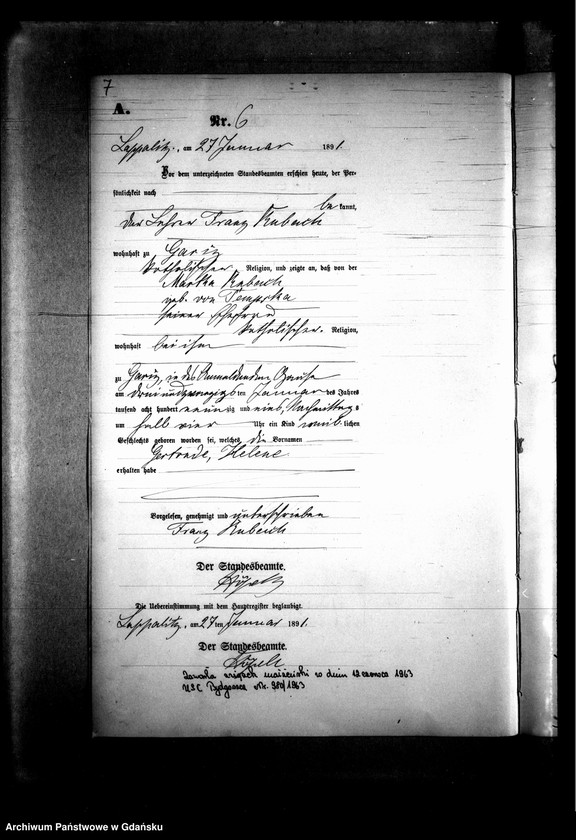 7
A.
Nr. 6
Lappalitz, am 27 Januar 1891.
Vor dem unterzeichneten Standesbeamten erschien heute, der Per-
sönlichkeit nach
be kannt,
der Lehrer Franz Kubach
wohnhaft zu
katholischer Religion, und zeigte an, daß von der
Martha Kubach
geb. von Tempska
seiner Ehefrau
katholischer Religion,
wohnhaft bei ihm
zu in des Anmeldenden Hause
am dreiundzwanzigsten Januar des Jahres
tausend acht hundert neunzig und eins, Nachmittags
um halb vier Uhr ein Kind weib lichen
Geschlechts geboren worden sei, welches die Vornamen
Gertrude, Helene
erhalten habe
Vorgelesen, genehmigt und unterschrieben
Franz Kubach
Der Standesbeamte.
Die Uebereinstimmung mit dem Hauptregister beglaubigt.
Lappalitz, am 27 ten Januar 1891.
Der Standesbeamte.
Zawarła związek małżeński w dniu 12 czerwca 1963
USC Bydgoszcz Nr. 980/1963
Archiwum Państwowe w Gdańsku